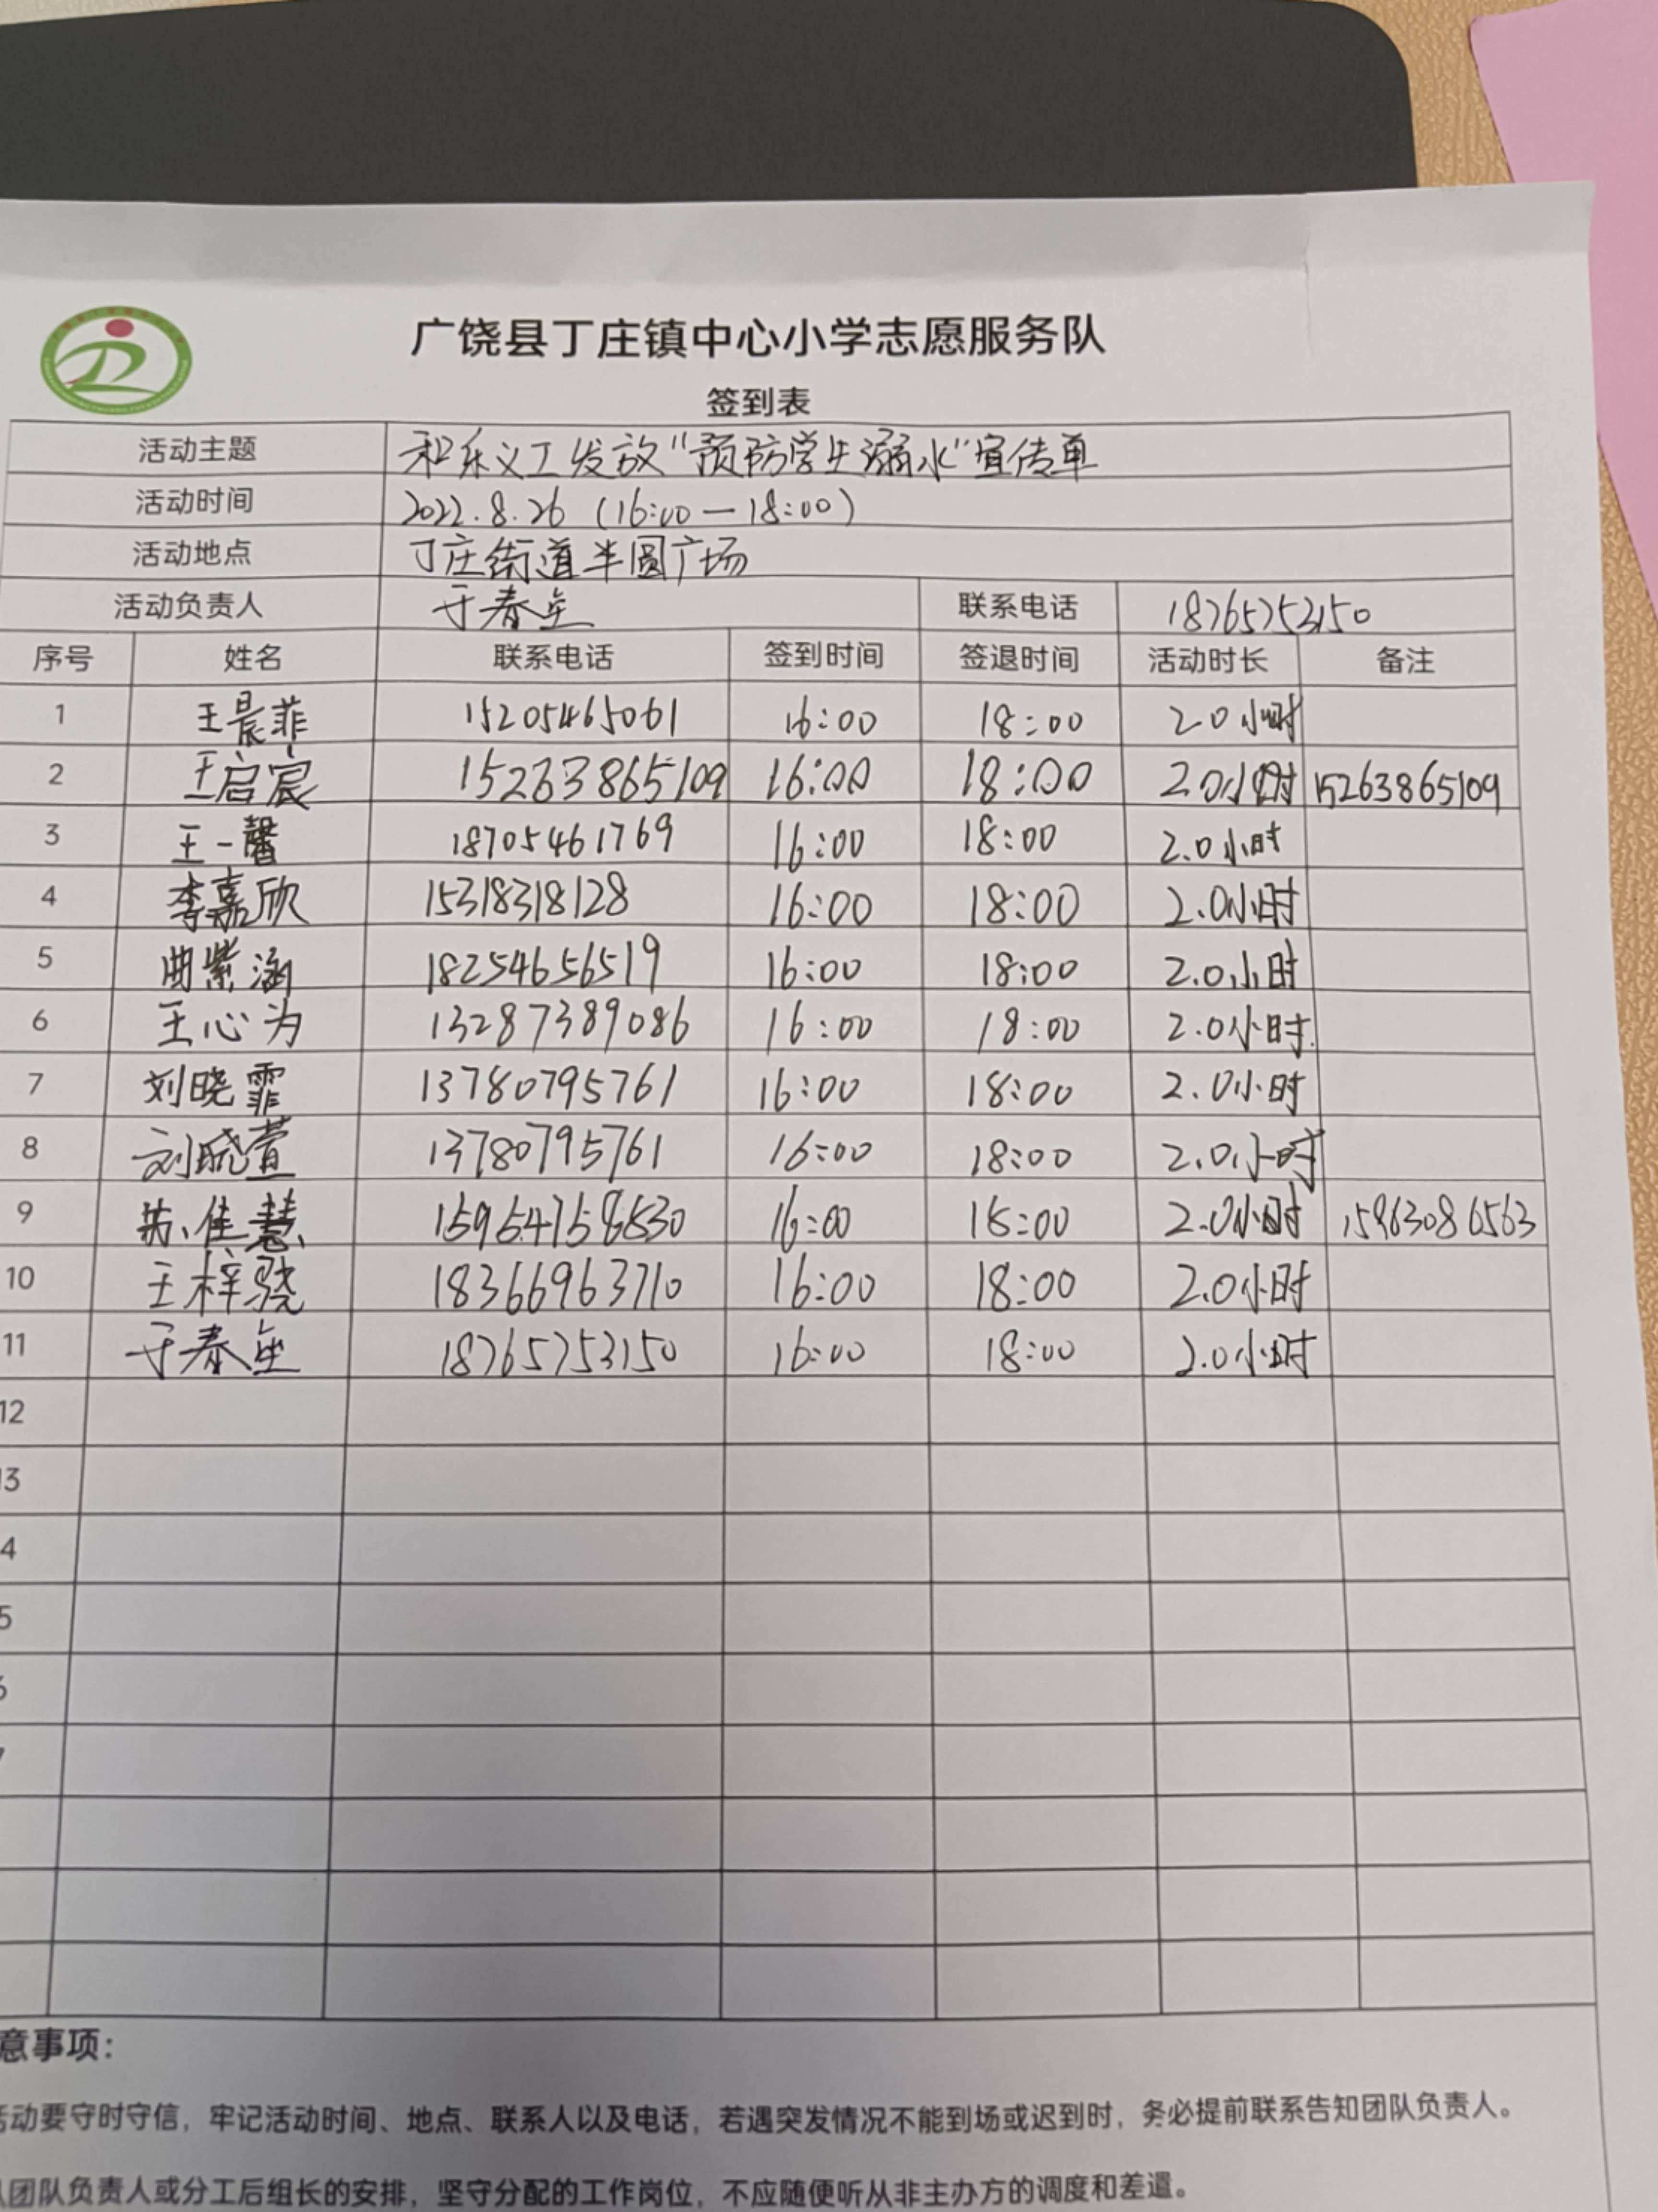 广饶县丁庄镇中心小学志愿服务队
签到表
活动主题 和乐义工发放“预防学生溺水”宣传单
活动时间 2022.8.26 (16:00—18:00)
活动地点 丁庄街道半圆广场
活动负责人 于春 联系电话 18765753150
序号 姓名 联系电话 签到时间 签退时间 活动时长 备注
1 王晨菲 15205465061 16:00 18:00 2.0小时
2 王启宸 15263865109 16:00 18:00 2.0小时 15263865109
3 王一馨 18705461769 16:00 18:00 2.0小时
4 李嘉欣 15318318128 16:00 18:00 2.0小时
5 曲紫涵 18254656519 16:00 18:00 2.0小时
6 王心为 13287389086 16:00 18:00 2.0小时
7 刘晓霏 13780795761 16:00 18:00 2.0小时
8 刘晓萱 13780795761 16:00 18:00 2.0小时
9 佳慧 16:00 18:00 2.0小时 15963086563
10 王梓骁 18366963710 16:00 18:00 2.0小时
11 于春 18765753150 16:00 18:00 2.0小时
12
13
4
5
6
7
意事项：
活动要守时守信，牢记活动时间、地点、联系人以及电话，若遇突发情况不能到场或迟到时，务必提前联系告知团队负责人。
团队负责人或分工后组长的安排，坚守分配的工作岗位，不应随便听从非主办方的调度和差遣。